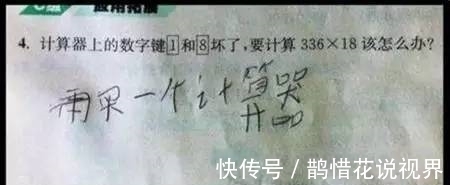 应用拓展
4. 计算器上的数字键1和8坏了,要计算 336×18 该怎么办?
再买一个计算器
快传号 / 鹊惜花说视界